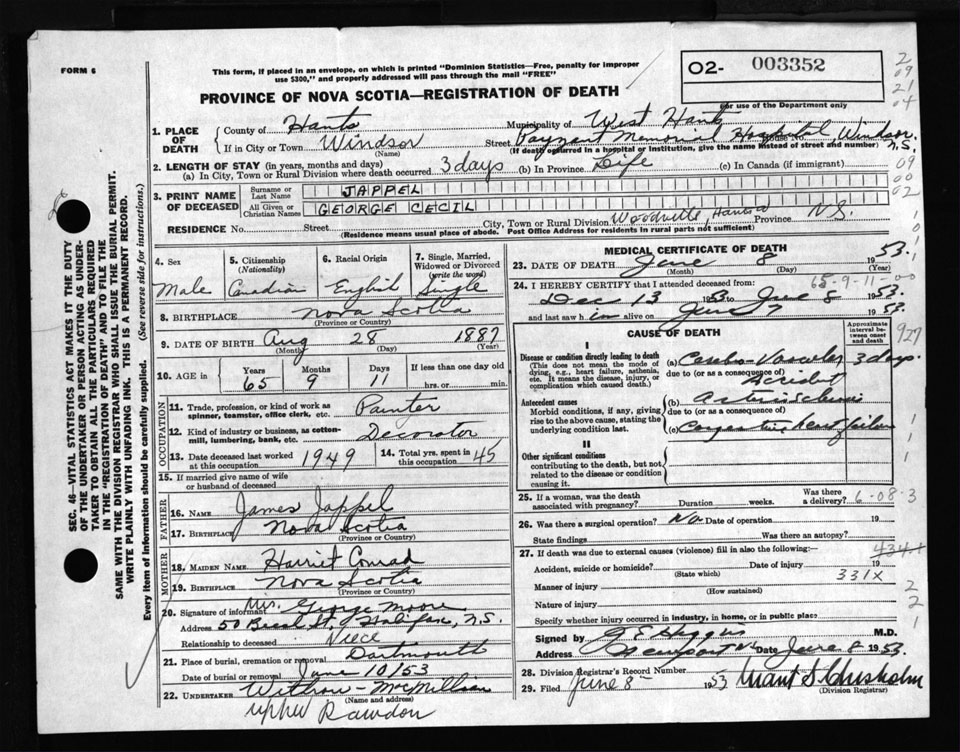 FORM 6
This form, if placed in an envelope, on which is printed "Dominion Statistics—Free, penalty for improper
use $300," and properly addressed will pass through the mail "FREE"
02- 003352
For use of the Department only
PROVINCE OF NOVA SCOTIA—REGISTRATION OF DEATH
2
09
21
04
09
00
02
1. PLACE OF DEATH
County of Hants Municipality of West Hants
If in City or Town Windsor Street Payzant Memorial Hospital, Windsor N.S.
(Name) (If death occurred in a hospital or institution, give the name instead of street and number)
2. LENGTH OF STAY (in years, months and days)
(a) In City, Town or Rural Division where death occurred 3 days (b) In Province Life (c) In Canada (if immigrant)
3. PRINT NAME OF DECEASED
Surname or Last Name JAPPEL
All Given or Christian Names GEORGE CECIL
RESIDENCE No. Street City, Town or Rural Division Woodville, Hants Co Province N.S.
(Residence means usual place of abode. Post Office Address for residents in rural parts not sufficient)
4. Sex Male
5. Citizenship (Nationality) Canadian
6. Racial Origin English
7. Single, Married, Widowed or Divorced (write the word) Single
8. BIRTHPLACE Nova Scotia
(Province or Country)
9. DATE OF BIRTH Aug 28 1887
(Month) (Day) (Year)
10. AGE in Years 65 Months 9 Days 11 If less than one day old hrs. or min.
OCCUPATION
11. Trade, profession, or kind of work as spinner, teamster, office clerk, etc. Painter
12. Kind of industry or business, as cotton-mill, lumbering, bank, etc. Decorator
13. Date deceased last worked at this occupation 1949
14. Total yrs. spent in this occupation 45
15. If married give name of wife or husband of deceased
FATHER
16. NAME James Jappel
17. BIRTHPLACE Nova Scotia
(Province or Country)
MOTHER
18. MAIDEN NAME Harriet Conrad
19. BIRTHPLACE Nova Scotia
(Province or Country)
20. Signature of informant Mrs. George Moore
Address 50 St, Halifax, N.S.
Relationship to deceased Niece
21. Place of burial, cremation or removal Dartmouth
Date of burial or removal June 10/53
22. UNDERTAKER Withrow - MacMillan
(Name and address)
Upper Rawdon
MEDICAL CERTIFICATE OF DEATH
23. DATE OF DEATH June 8 1953.
(Month) (Day) (Year)
65-9-11-00
24. I HEREBY CERTIFY that I attended deceased from:
Dec 13 1953 to June 8 1953.
and last saw him alive on June 7 1953.
CAUSE OF DEATH
Approximate interval between onset and death
927
I
Disease or condition directly leading to death
(This does not mean the mode of dying, e.g., heart failure, asthenia, etc. It means the disease, injury, or complication which caused death.)
(a) Cerebro-Vascular 3 days.
due to (or as a consequence of)
Accident
Antecedent causes
Morbid conditions, if any, giving rise to the above cause, stating the underlying condition last.
(b) Arteriosclerosis
due to (or as a consequence of)
(c) Congestive heart failure
II
Other significant conditions
contributing to the death, but not related to the disease or condition causing it.
25. If a woman, was the death associated with pregnancy? Duration weeks. Was there a delivery? 6-08-3
26. Was there a surgical operation? No. Date of operation 19
State findings Was there an autopsy?
27. If death was due to external causes (violence) fill in also the following:
4341
Accident, suicide or homicide? Date of injury 19
(State which)
331X
Manner of injury
(How sustained)
Nature of injury
Specify whether injury occurred in industry, in home, or in public place
Signed by G E Higgins M.D.
Address Newport NS Date June 8 1953.
28. Division Registrar's Record Number
29. Filed June 8 1953 Chisholm
(Division Registrar)
SEC. 46—VITAL STATISTICS ACT MAKES IT THE DUTY
OF THE UNDERTAKER OR PERSON ACTING AS UNDERTAKER
TO OBTAIN ALL THE PARTICULARS REQUIRED
IN THE "REGISTRATION OF DEATH" AND TO FILE THE
SAME WITH THE DIVISION REGISTRAR WHO SHALL ISSUE THE BURIAL PERMIT.
WRITE PLAINLY WITH UNFADING INK. THIS IS A PERMANENT RECORD.
Every item of information should be carefully supplied. (See reverse side for instructions.)